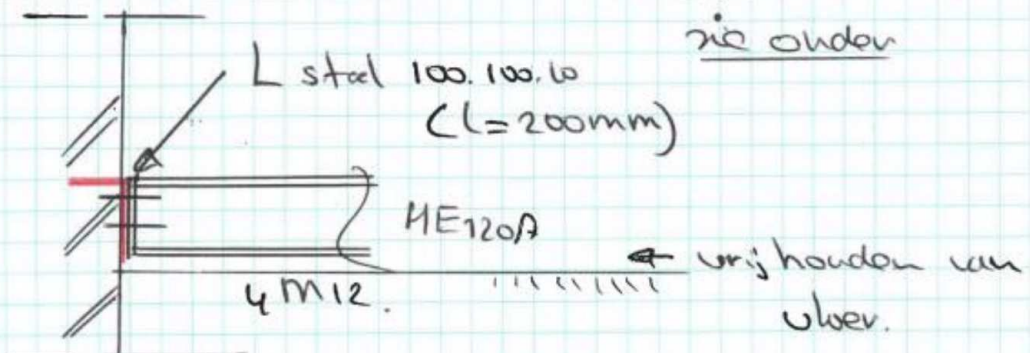 zie onder
L staal 100.100.10
(l=200mm)
HE120A
vrijhouden van
vloer.
4 M12.